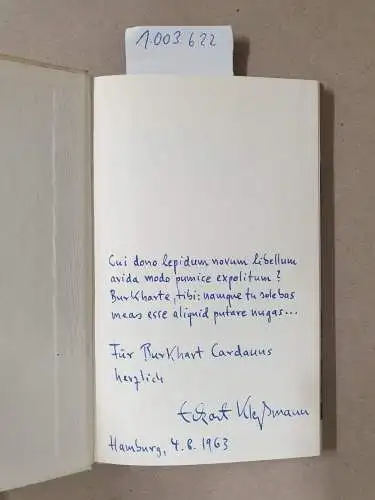 1.003.622
Cui dono lepidum novum libellum
arida modo pumice expolitum?
Burkharte, tibi: namque tu solebas
meas esse aliquid putare nugas...
Für Burkhart Cardauns
herzlich
Eckart Kleßmann
Hamburg, 4.8.1963